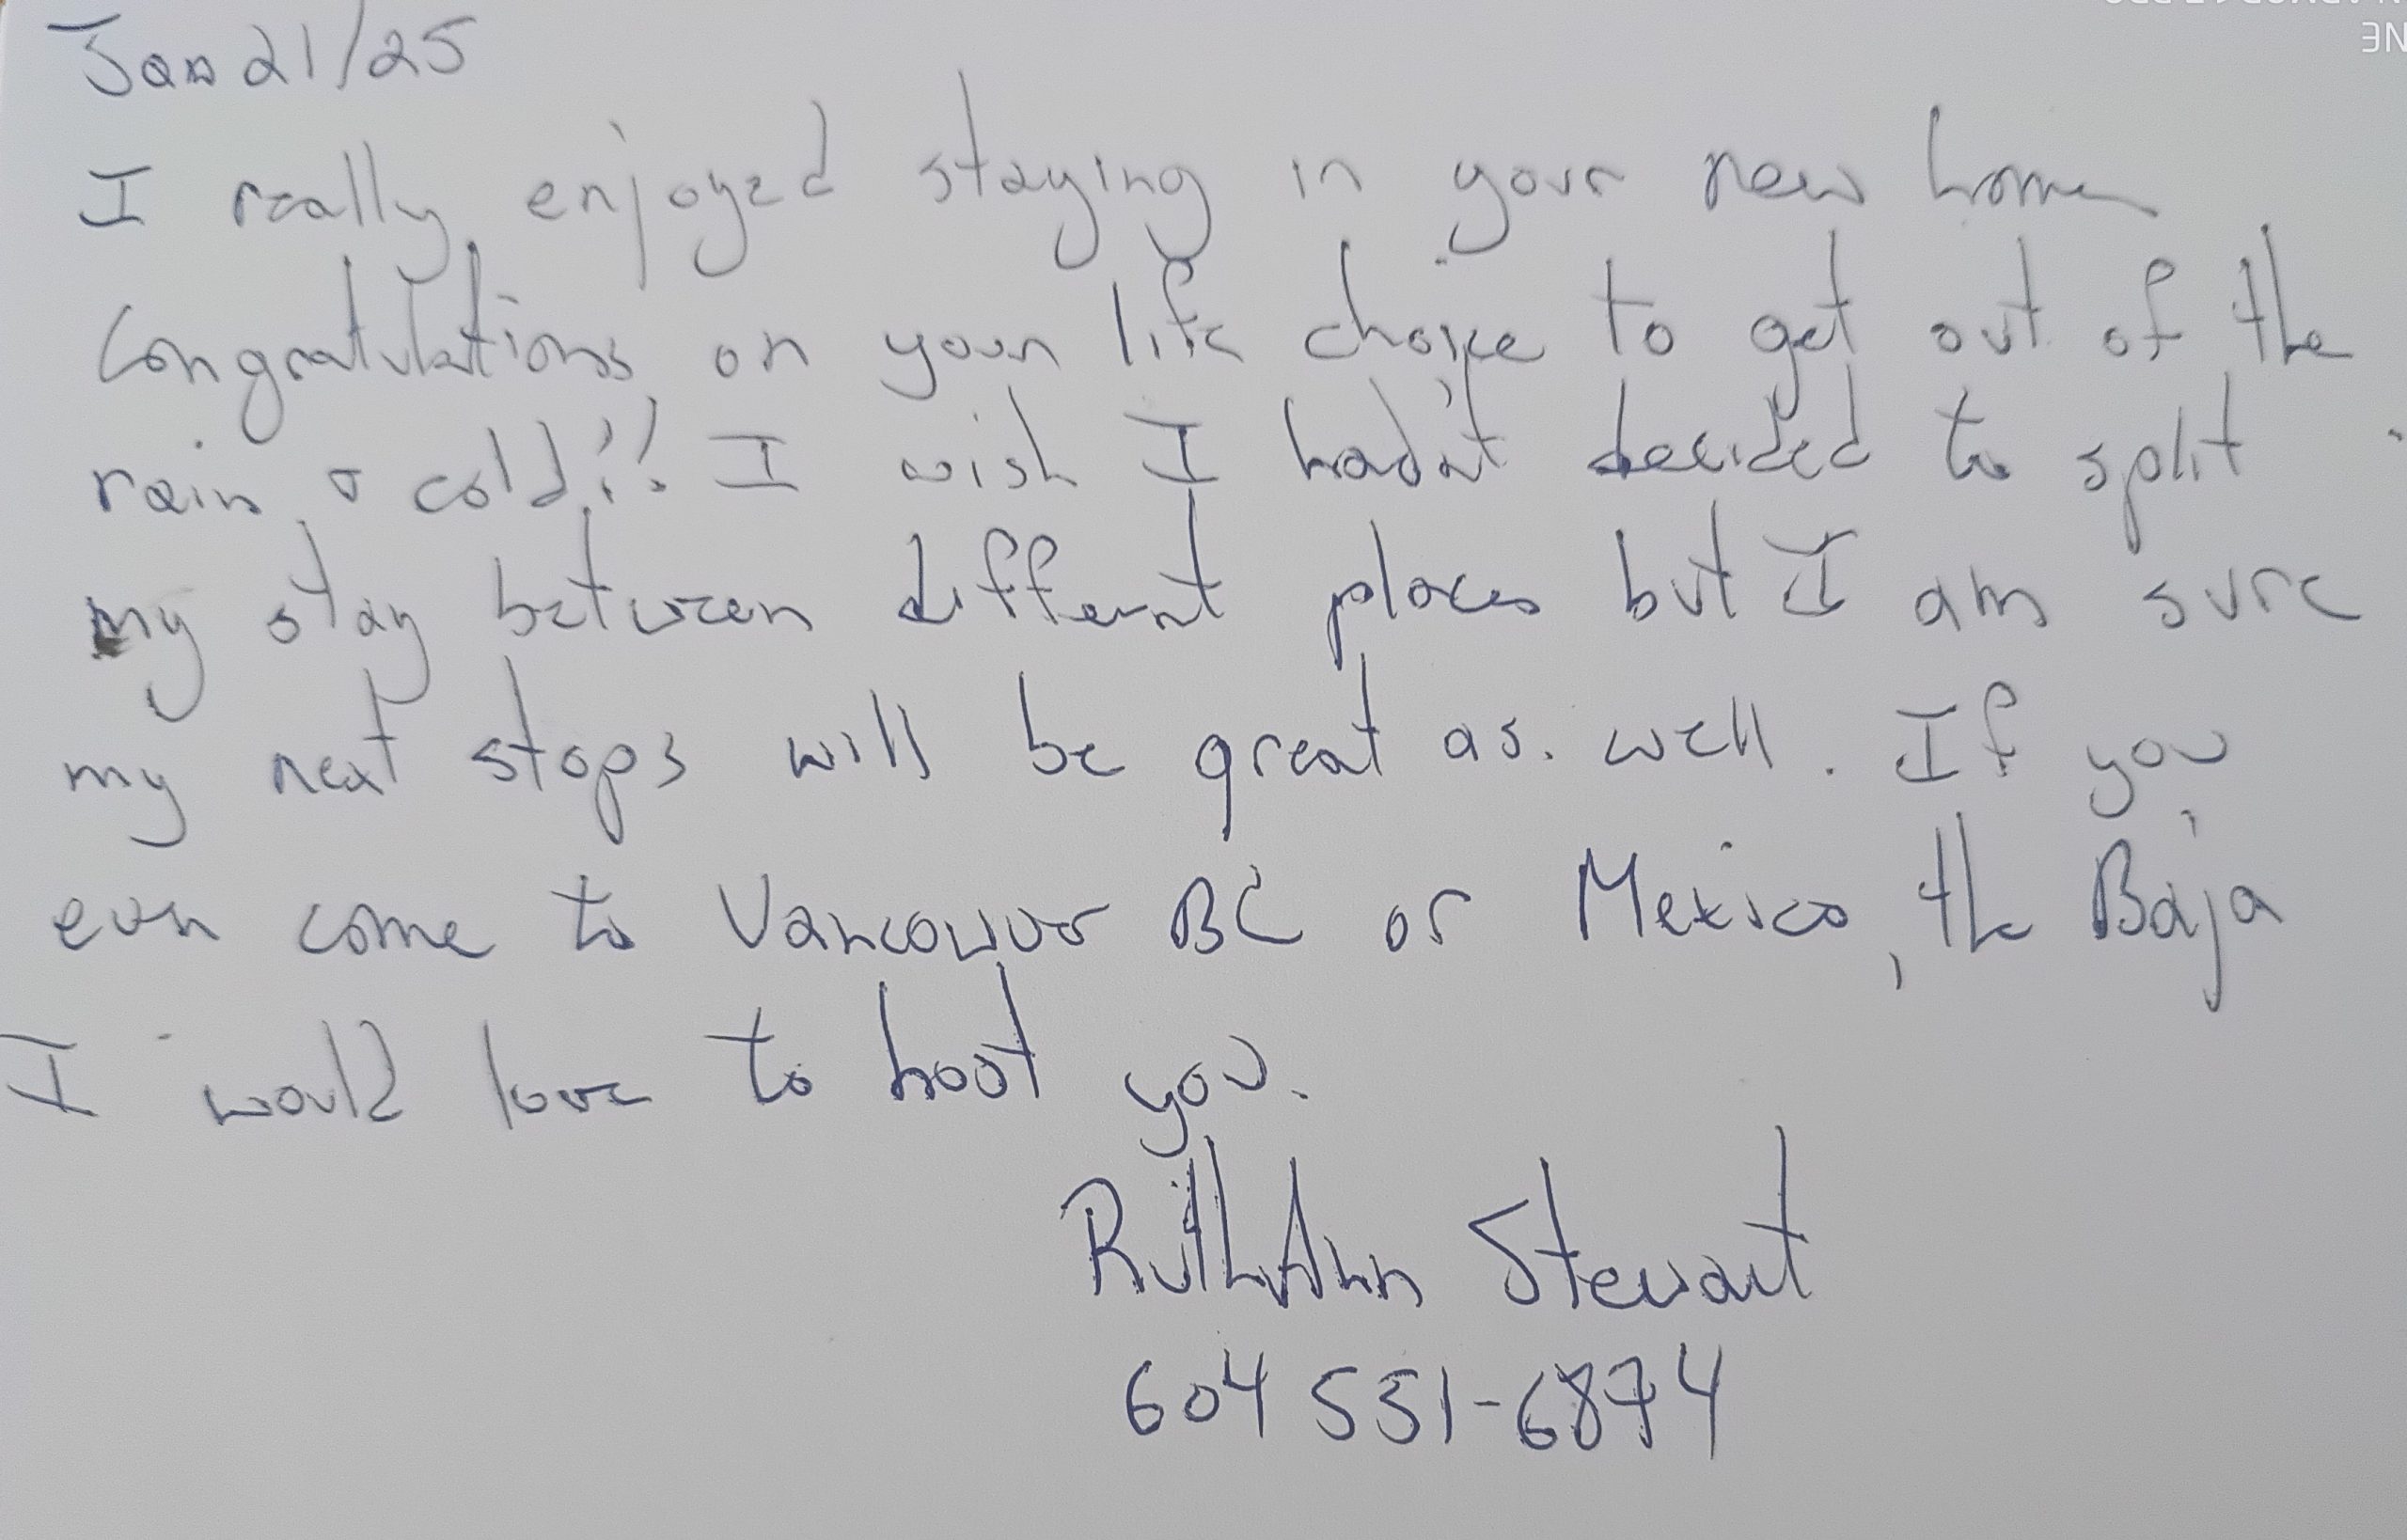 Jan 21/25
I really enjoyed staying in your new home
Congratulations on your life choice to get out of the
rain & cold!! I wish I hadn't decided to split
my stay between different places but I am sure
my next stops will be great as well. If you
ever come to Vancouver BC or Mexico, the Baja
I would love to host you.
RuthAnn Stewart
604 551-6874